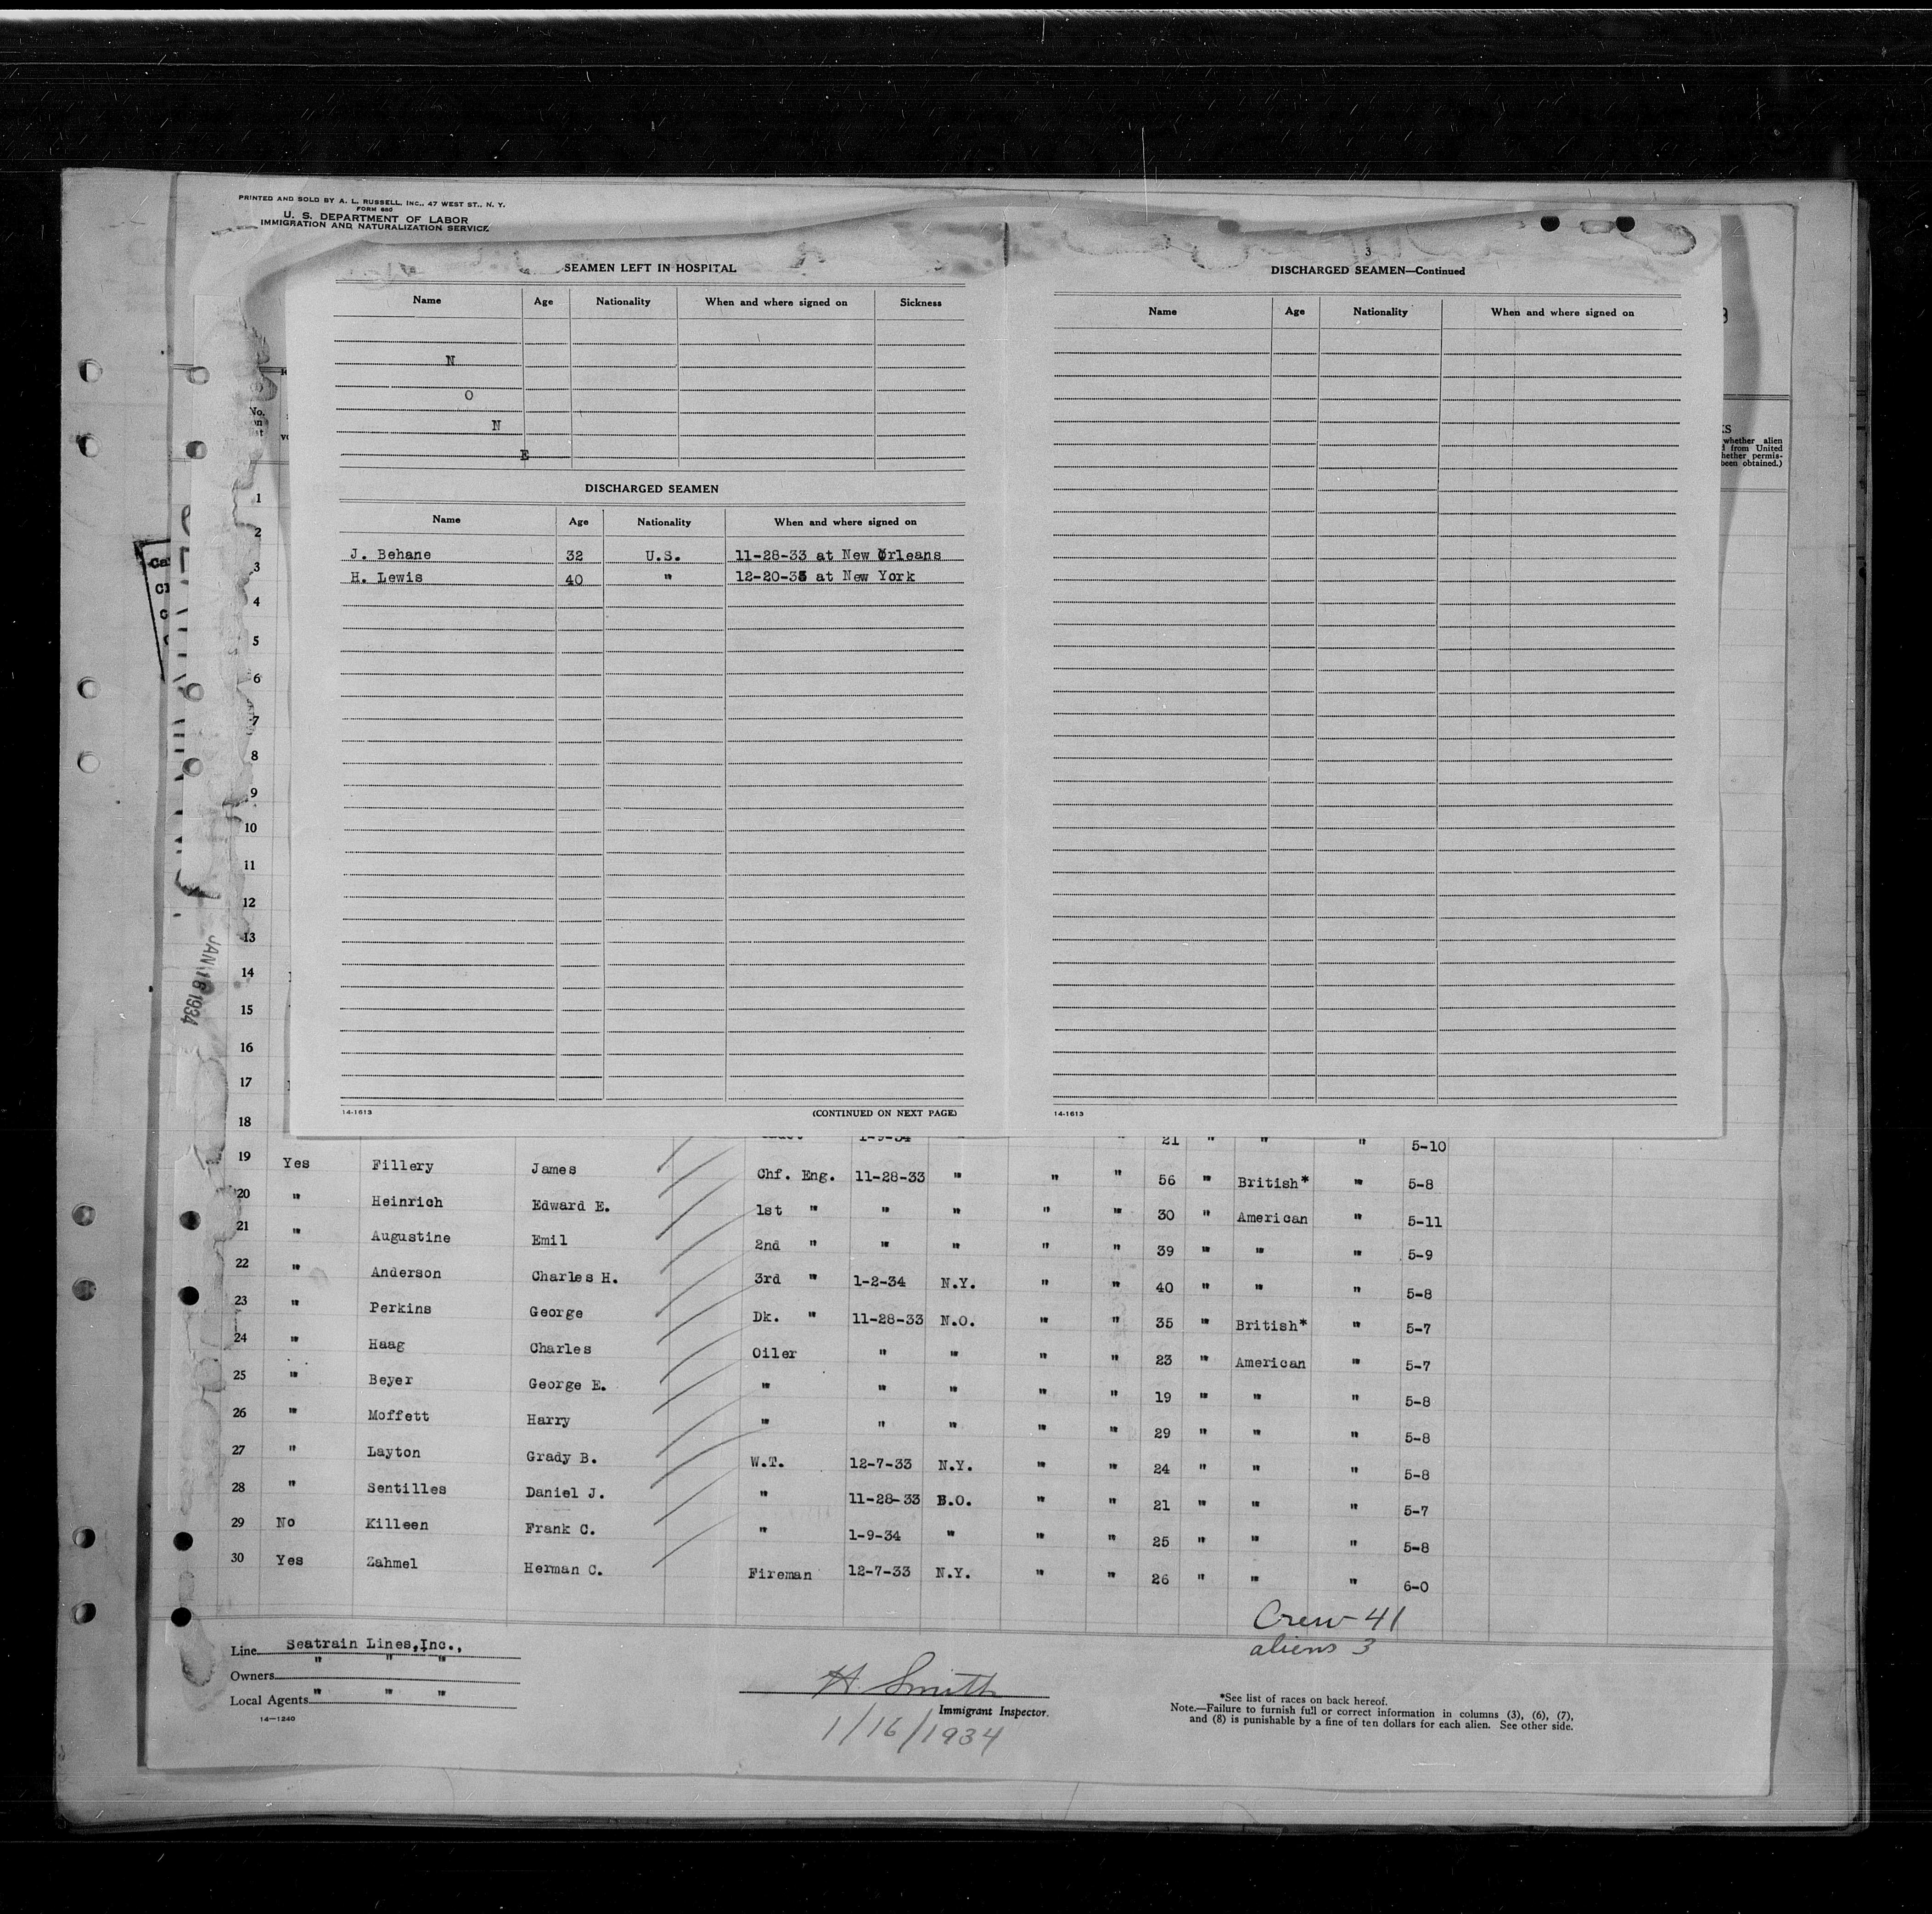 PRINTED AND SOLD BY A. L. RUSSELL, INC., 47 WEST ST., N. Y.
FORM 680
U. S. DEPARTMENT OF LABOR
IMMIGRATION AND NATURALIZATION SERVICE
SEAMEN LEFT IN HOSPITAL
Name Age Nationality When and where signed on Sickness
N
O
N
E
DISCHARGED SEAMEN
Name Age Nationality When and where signed on
J. Behane 32 U.S. 11-28-33 at New Orleans
H. Lewis 40 " 12-20-33 at New York
14-1613 (CONTINUED ON NEXT PAGE)
3
DISCHARGED SEAMEN—Continued
Name Age Nationality When and where signed on
14-1613
whether alien
from United
hether permis-
been obtained.)
No.
1
2
3
4
5
6
7
8
9
10
11
12
13
14
15
16
17
JAN 16 1934
18 1-9-34 " " 21 " " " 5-10
19 Yes Fillery James Chf. Eng. 11-28-33 " " " 56 " British* " 5-8
20 " Heinrich Edward E. 1st " " " " " 30 " American " 5-11
21 " Augustine Emil 2nd " " " " " 39 " " " 5-9
22 " Anderson Charles H. 3rd " 1-2-34 N.Y. " " 40 " " " 5-8
23 " Perkins George Dk. " 11-28-33 N.O. " " 35 " British* " 5-7
24 " Haag Charles Oiler " " " " 23 " American " 5-7
25 " Beyer George E. " " " " " 19 " " " 5-8
26 " Moffett Harry " " " " " 29 " " " 5-8
27 " Layton Grady B. W.T. 12-7-33 N.Y. " " 24 " " " 5-8
28 " Sentilles Daniel J. " 11-28-33 B.O. " " 21 " " " 5-7
29 No Killeen Frank C. " 1-9-34 " " " 25 " " " 5-8
30 Yes Zahmel Herman C. Fireman 12-7-33 N.Y. " " 26 " " " 6-0
Crew 41
aliens 3
Line Seatrain Lines, Inc.,
Owners " " "
Local Agents " " "
14—1240
H. Smith
Immigrant Inspector.
1/16/1934
*See list of races on back hereof.
Note.—Failure to furnish full or correct information in columns (3), (6), (7),
and (8) is punishable by a fine of ten dollars for each alien. See other side.